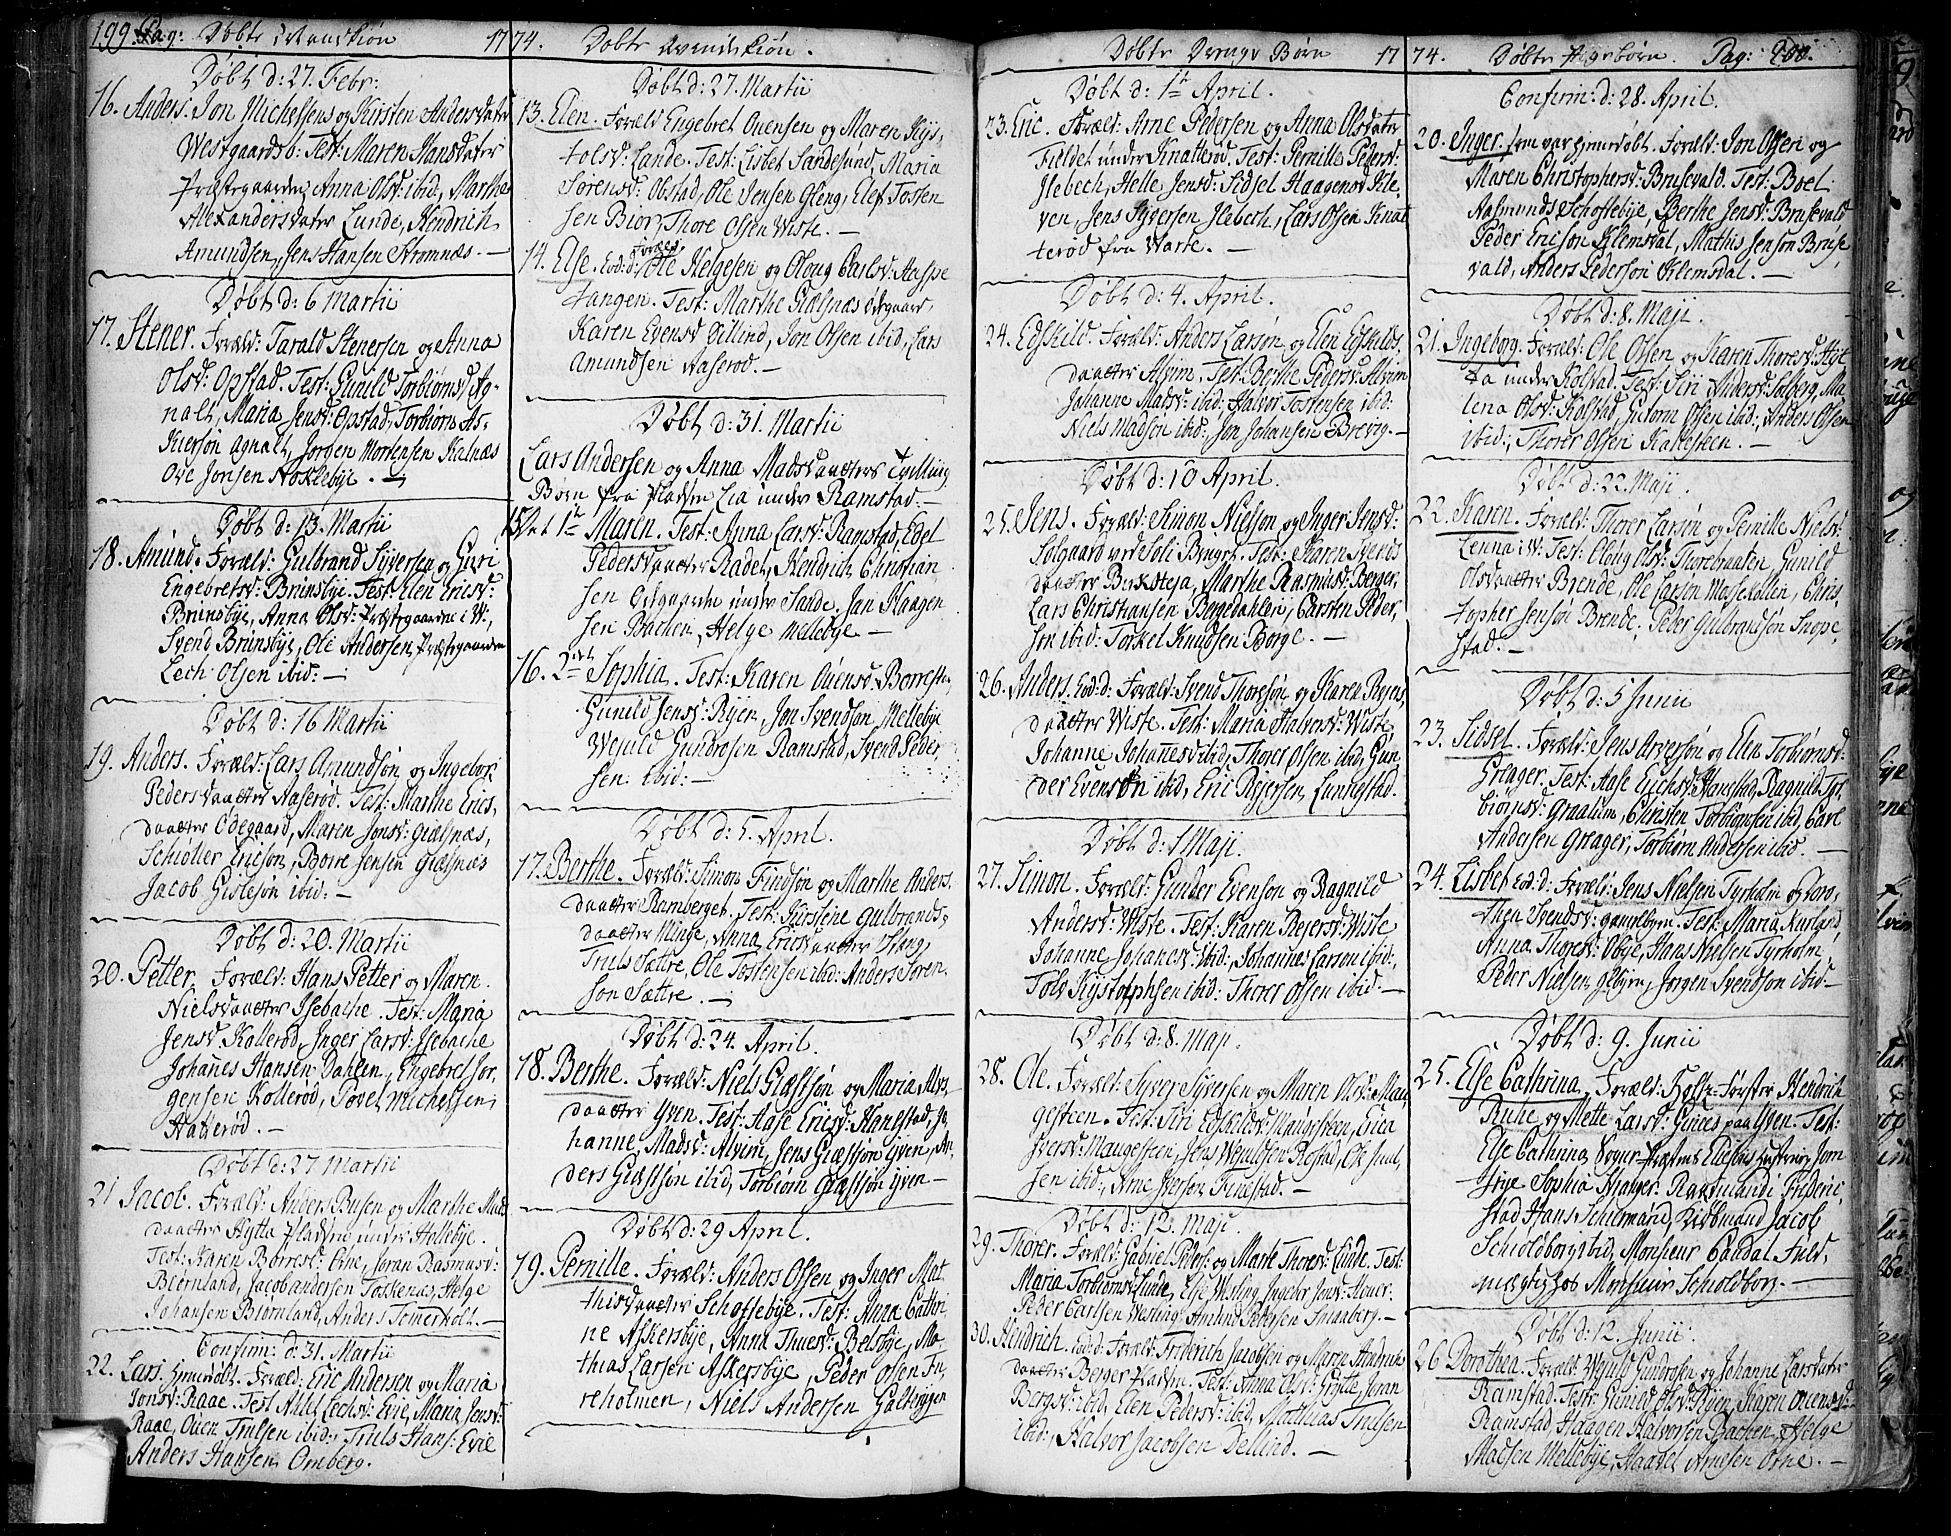 199. Pag: Døbte Mandkiøn 17
74. Døbte Qvindekiøn.
Døbt d: 27. Febr:
16. Anders. Jon Michelsens og Kirsten Andersdater
Westgaardsb: Test: Maren Hansdater
Præstegaarden, Anna Olsd: ibid, Marthe
Alexandersdater Lunde, Hendrich
Amundsen, Jens Hansen Strømnæs. —
Døbt d: 6 Martii
17. Stener. Foræld: Tarald Stenersen og Anna
Olsd: Opstad. Test: Gunild Torbiørnsd Ag-
nalt, Maria Jensd: Opstad, Torbiørn As-
kiersøn Agnalt, Jørgen Mortensen Kalnæs
Ove Jonsen Nøklebye. —
Døbt d: 13. Martii
18. Amund. Foræld: Gulbrand Syversen og Guri
Engebretsd: Brunsbye. Test: Elen Ericsd:
Brunsbye, Anna Olsd: Præstegaarden i W:,
Svend Brunsbye, Ole Andersen Præstegaarden
Lech Olsen ibid: —
Døbt d: 16 Martii
19. Anders. Foræld: Lars Amundsøn og Ingebor
Pedersdaatter Aaserød. Test: Marthe Erics-
daatter Ødegaard, Maren Jonsd: Giælsnæs,
Schiøller Ericson, Borre Jensen Giælsnæs
Jacob Gislesøn ibid: —
Døbt d: 20. Martii
20. Petter. Foræld: Hans Petter og Maren
Nielsdaatter Isebache. Test: Maria
Jensd Kollerød, Inger Larsd: Isebache
Johañes Hansen Dahlen, Engebret Jør-
gensen Kollerød, Povel Michelsen
Hatterød. —
Døbt d: 27 Martii
21 Jacob. Foræld: Anders Busen og Marthe Mad
daatter Hytta Pladsen under Hollebye.
Test: Karen Borresd: Evie, Joran Rasmusd:
Biørnland, Jacob Andersen Torkene, Helge
Johansen Biørnland, Anders Tomerholt. —
Confirm: d: 31. Martii
22. Lars. Hjemdøbt. Foræld: Eric Andersen og Maria
Jonsd: Raae. Test: Ahlet Lechsd: Evie, Maria Jensd:
Raae, Ouen Trulsen ibid:, Truls Hans: Evie
Anders Hansen Omberg.
Døbt d: 27. Martii
13. Elen. Foræld Engebret Ouensen og Maren Kys-
tolsd: Lande. Test: Lisbet Sandesund, Maria
Sørensd: Obstad, Ole Jensen Gleng, Elef Tosten
sen Bior, Thore Olsen Wiste. —
14. Else. Eod: d: Foræld: Ole Helgesen og Oloug Carlsd: Aaspe
tangen. Test: Marthe Giælsnæs Ødegaard,
Karen Evensd Villind, Jon Olsen ibid, Lars
Amundsen Aaserød. —
Døbt d: 31. Martii
Lars Andersen og Anna Madsdaatters Tvilling
Børn fra Pladsen Lia under Ramstad.
15. Det 1te Maren. Test: Anna Larsd: Ramstad, Edel
Pedersdaatter Radet, Hendrich Christian-
sen Ødegaarden under Sande. Jan Haagen
sen Bachen, Helge Mellebye —
16. 2det Sophia. Test: Karen Ouensd: Borreth
Gunild Jensd: Ryen, Jon Svendsøn Mellebye
Wefuld Gundrosen Ramstad, Svend Peder
sen ibid: —
Døbt d: 5. April.
17. Berthe. Foræld: Simon Findsøn og Marthe Anders-
daatter Ramberget. Test: Kirstine Gulbrands-
daatter Minge, Anna Ericsdaatter Stang,
Truls Sættre, Ole Tostensen ibid: Anders Søren
søn Sættre. —
Døbt d: 24. April.
18. Berthe. Foræld: Niels Giæstsøn og Maria Alves-
daatter Yven. Test: Aase Ericsd: Hanestad, Jo
hanne Madsd: Alvim, Jens Giæstsøn Yven, An-
ders Giæstsøn ibid, Torbiørn Giæstsøn Yven —
Døbt d: 29 April.
19. Pernille. Foræld: Anders Olsen og Inger Mat
thisdaatter Schoftebye. Test: Anna Cathri
ne Askersbye, Anna Thuesd: Belsbye, Ma-
thias Larsen Askersbye, Peder Olsen In-
reholmen, Niels Andersen Galtungen
Døbte Drenge Børn 17
74. Døbte Pigebørn. Pag: 200.
Døbt d: 1te April.
23. Eric. Foræld: Arne Pedersen og Anna Olsdater
Fieldet under Knatterød. Test: Pernille Pedersd:
Ilebech, Helle Jensd: Sidsel Haagensd Kle
ven, Jens Sygersen Ilebech, Lars Olsen Knat
terød fra Warte. —
Døbt d: 4. April.
24. Edskild. Foræld: Anders Larsøn og Elen Edskilds-
daatter Alvim. Test: Berthe Pedersd: Alvim
Johanne Madsd: ibid: Halvor Tostensen ibid:
Niels Madsøn ibid: Jon Johansen Brevig. —
Døbt d: 10 April.
25. Jens. Foræld: Simon Nielsøn og Inger Jensd:
Solgaard ved Soli Brugk. Test: Karen Syvers
daatter Birketeja, Marthe Rasmusd: Berger,
Lars Christiansen Bergedahlen, Carsten Peder,
sen ibid: Torkel Knudsen Borge. —
26. Anders. Eod: d: Foræld: Svend Thoresøn og Karen Reyers
daatter Wiste. Test: Maria Halvorsd: Wiste,
Johanne Johañesd ibid, Thorer Olsen ibid, Gun
der Evensøn ibid, Eric Reyersen Lundestad.
Døbt d: 1 Maji.
27. Simon. Foræld: Gunder Evensøn og Ragnild
Andersd: Wiste. Test: Karen Reyersd: Wiste
Johanne Johanesd: ibid:, Johannes Larsøn ibid:,
Tolv Kystolphsen ibid: Thorer Olsen ibid: —
Døbt d: 8. Maji
28. Ole. Foræld: Syver Syversen og Maren Olsd: Mau
gesteen. Test: Siri Edskildsd: Maugesteen, Erica
Iversd: Maugesteen, Jens Wefuldsen Rostad, Ole Juul
sen ibid:, Arne Iversen Finnestad. —
Døbt d: 12. Maji
29. Thorer. Foræld: Gabriel Peders: og Marte Thoresd: Linde. Test:
Maria Torbiørnsd Linde, Else Westing, Ingebor Jensd: Huner
Peder Carlsen Westing, Amund Pedersen Svaneberg. —
30. Hendrich. Eod: d: Foræld: Friderich Jacobsen og Maren Hendrich
daatter Berger Pladsen. Test: Anna Olsd: Grytte, Joran
Bergsd: ibid, Elen Pedersd: ibid, Matthias Trulsen
ibid:, Halvor Jacobsen Dellind. —
Confirm: d: 28. April.
20. Inger. som var hjemdøbt. Foræld: Jon Olsen og
Maren Christophersd: Brusevald. Test: Boel
Aasmunds Schoftebye, Berthe Jensd: Brusevald
Peder Ericson Klemsdal, Mathis Jensøn Bruse
vald, Anders Pedersøn Klemsdal. —
Døbt d: 8. Maji.
21. Ingeborg. Foræld: Ole Olsen og Karen Thoresd: Hyt
ta under Kolstad. Test: Siri Andersd: Solberg, Ma
lena Olsd: Kolstad, Gutorm Olsen ibid:, Anders Olsen
ibid:, Thorer Olsen Kakesteen. —
Døbt d: 22. Maji.
22. Karen. Foræld: Thorer Larsøn og Pernille Nielsd:
Lenna i W: Test: Oloug Olsd: Thorebraaten, Gunild
Olsdaatter Brende, Ole Larsøn Mossekollen, Chris
topher Jensøn Brende, Peder Gulbrandsøn Snope
stad. —
Døbt d: 5 Junii
23. Sidsel. Foræld: Jens Arvesøn og Elen Torbiørnsd:
Greager. Test: Aase Erichsd Hanestad, Ragnild Tor
biørnsd: Graalum, Christen Torbiørnsen ibid, Carl
Andersen Greager, Torbiørn Andersen ibid. —
24. Lisbet Eod: d: Foræld: Jens Nielsen Tyrholm og Doro-
then Svendsd: gamlebyen. Test: Maria Kurland,
Anna Thoresd: Obye, Hans Nielsen Tyrholm,
Peder Nielsen Glbyen, Jørgen Svendsøn ibid: —
Døbt d: 9. Junii
25. Else Cathrina. Foræld: Holtz-Førster Hendrich
Ruhe og Mette Larsd: Gineos paa Yven. Test:
Else Cathrina Sogne-Præstens Eliesens hustrue, Jom
frue Sophia Stranger. Raadmand i Frideric
stad Hans Schiermand, Kiøbmand Jacob
Schioldborg ibid, Monsieur Candal Fuld-
mægtig hos Monsieur Schioldborg. —
Døbt d: 12. Junii.
26. Dorothea. Foræld: Wefuld Gundrosen og Johanne Larsdater
Ramstad. Test: Gunild Olsd: Ryen, Karen Ouensd:
Ramstad, Haagen Halvorsen Bachen, Helge
Madsen Mellebye, Haavel Arnesen Orne. —